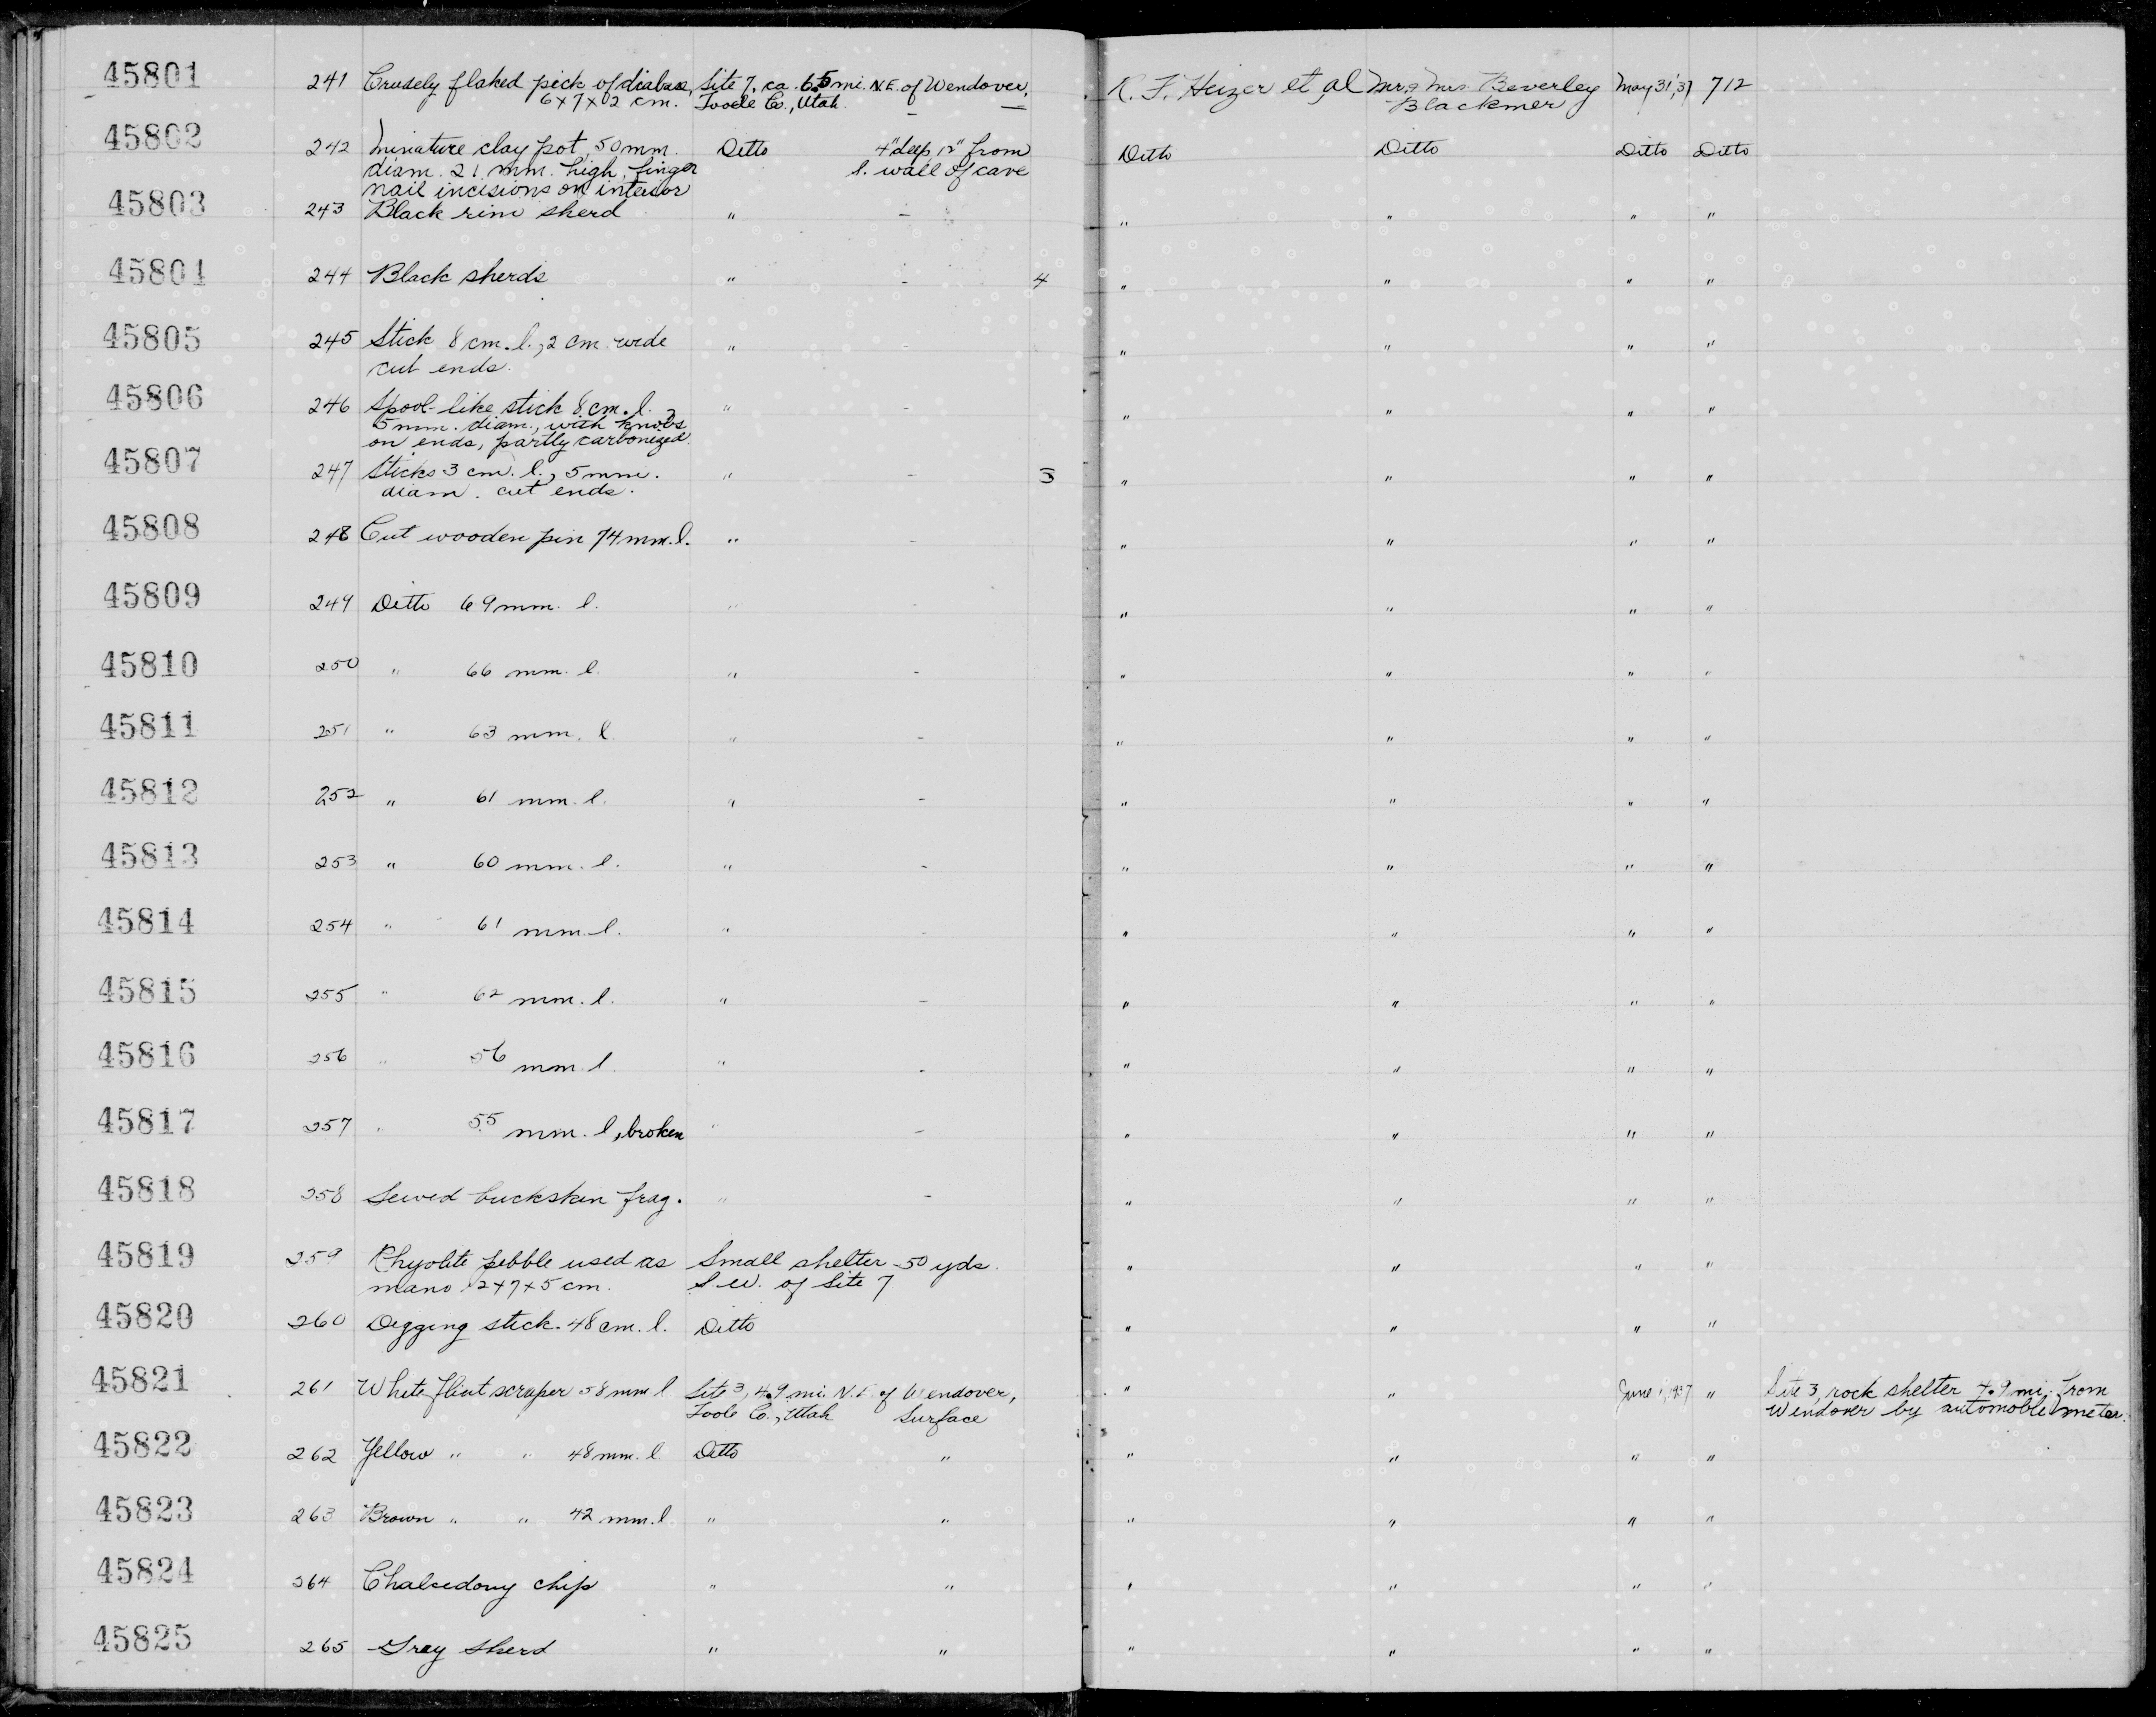 45801 241 Crudely flaked pick of diabase, Site 7, ca. 6.5 mi. N.E. of Wendover, R. F. Heizer et al Mr. & Mrs. Beverley May 31, '37 712
6x7x2 cm. Tooele Co., Utah. — Blackmer
45802 242 Miniature clay pot, 50 mm. Ditto 4" deep 12" from Ditto Ditto Ditto Ditto
diam. 21 mm. high, finger S. wall of cave
nail incisions on interior
45803 243 Black rim sherd " - " " " "
45804 244 Black sherds " - 4 " " " "
45805 245 Stick 8 cm. l., 2 cm. wide " - " " " "
cut ends.
45806 246 Spool-like stick 8 cm. l. " - " " " "
5 mm. diam., with knobs
on ends, partly carbonized.
45807 247 Sticks 3 cm. l., 5 mm. " - 3 " " " "
diam. cut ends.
45808 248 Cut wooden pin 74 mm. l. " - " " " "
45809 249 Ditto 69 mm. l. " - " " " "
45810 250 " 66 mm. l. " - " " " "
45811 251 " 63 mm. l " - " " " "
45812 252 " 61 mm. l. " - " " " "
45813 253 " 60 mm. l. " - " " " "
45814 254 " 61 mm. l. " - " " " "
45815 255 " 62 mm. l. " - " " " "
45816 256 " 56 mm. l " - " " " "
45817 257 " 55 mm. l, broken " - " " " "
45818 258 Sewed buckskin frag. " - " " " "
45819 259 Rhyolite pebble used as Small shelter 50 yds. " " " "
mano 12x7x5 cm. S.W. of Site 7
45820 260 Digging stick. 48 cm. l. Ditto " " " "
45821 261 White flint scraper 58 mm l Site 3, 4.9 mi. N.E. of Wendover, " " June 1, 1937 " Site 3, rock shelter 4.9 mi. from
Toole Co., Utah Surface Wendover by automobile meter.
45822 262 Yellow " " 48 mm. l Ditto " " " " "
45823 263 Brown " " 42 mm. l " " " " " "
45824 264 Chalcedony chip " " " " " "
45825 265 Gray sherd " " " " " "